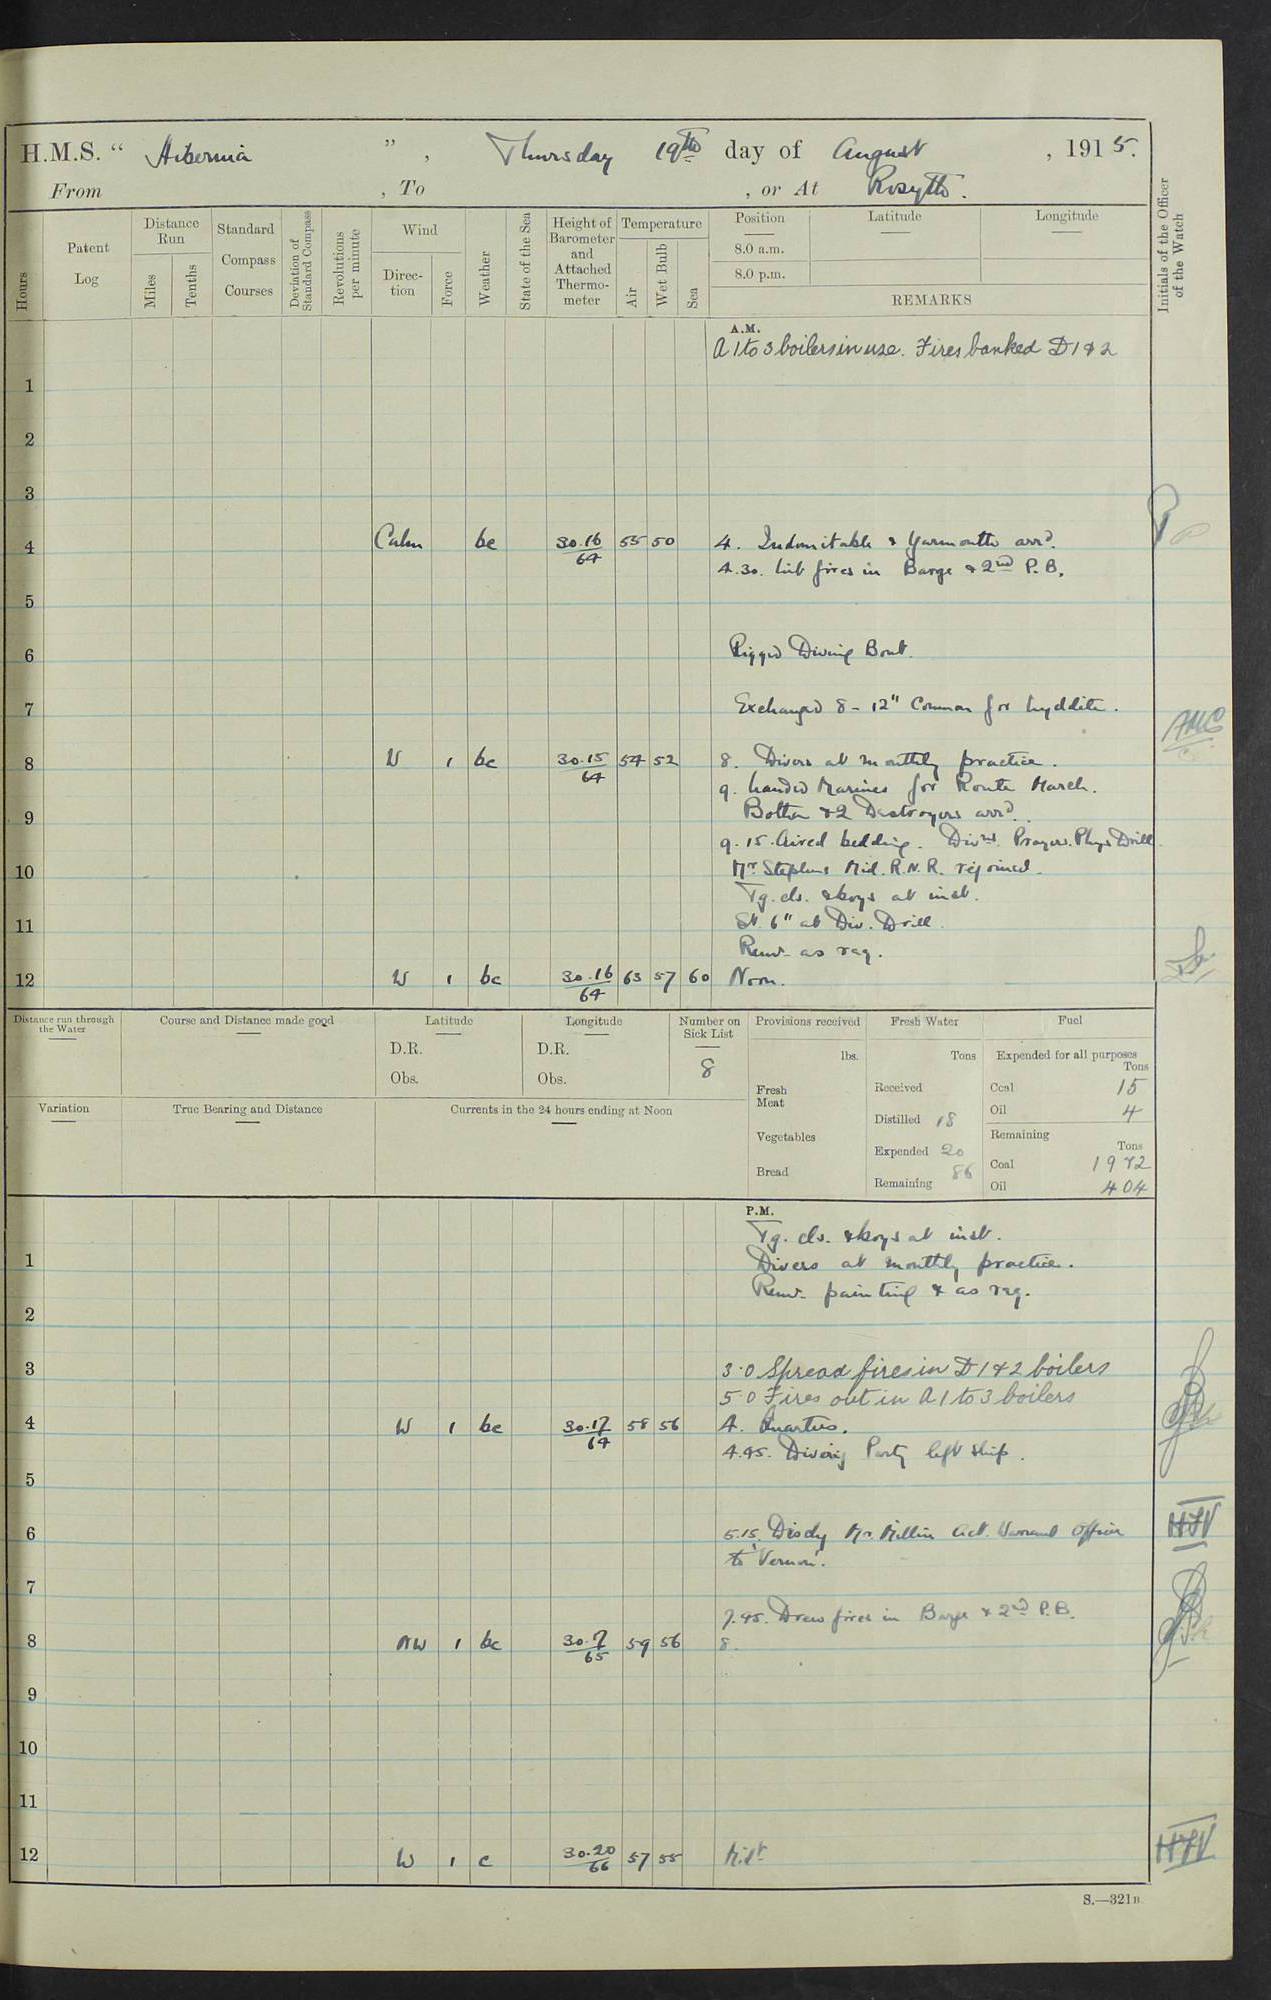 H.M.S. “ Hibernia ” , Thursday 19th day of August , 1915.
From , To , or At Rosyth.
Hours
Patent Log
Distance Run
Miles
Tenths
Standard Compass Courses
Deviation of Standard Compass
Revolutions per minute
Wind
Direc-tion
Force
Weather
State of the Sea
Height of Barometer and Attached Thermo-meter
Temperature
Air
Wet Bulb
Sea
Position
8.0 a.m.
8.0 p.m.
Latitude
Longitude
REMARKS
Initials of the Officer of the Watch
A.M.
A 1 to 3 boilers in use. Fires banked D 1 & 2
1
2
3
4 Calm bc 30.16/64 55 50 4. Indomitable & Yarmouth arrd.
4.30. Lit fires in Barge & 2nd P.B.
5
6 Rigged Diving Boat.
7 Exchanged 8 - 12" Common for Lyddite.
8 W 1 bc 30.15/64 54 52 8. Divers at monthly practice.
9. Landed Marines for Route March.
9 Botha & 2 Destroyers arrd.
9.15. Aired bedding. Divns. Prayers. Phys Drill.
10 Mr. Stephens Mid. R.N.R. rejoined.
Tg. cls. & boys at inst.
11 St. 6" at Div. Drill.
Remr. as req.
12 W 1 bc 30.16/64 63 57 60 Noon.
Distance run through the Water
Course and Distance made good
Latitude
D.R.
Obs.
Longitude
D.R.
Obs.
Number on Sick List
8
Provisions received
lbs.
Fresh Meat
Vegetables
Bread
Fresh Water
Tons
Received
Distilled 18
Expended 20
Remaining 86
Fuel
Expended for all purposes
Tons
Coal 15
Oil 4
Remaining
Tons
Coal 1972
Oil 404
Variation
True Bearing and Distance
Currents in the 24 hours ending at Noon
P.M.
Tg. cls. & boys at inst.
1 Divers at monthly practice.
Remr. painting & as req.
2
3 3.0 Spread fires in D 1 & 2 boilers
5.0 Fires out in A 1 to 3 boilers
4 W 1 bc 30.17/64 58 56 4. Quarters.
4.45. Diving Party left ship.
5
6 5.15. Discd Mr. Act. Warrant Officer
to 'Vernon'.
7
7.45. Drew fires in Barge & 2nd P.B.
8 NW 1 bc 30.7/65 59 56 8.
9
10
11
12 W 1 c 30.20/66 57 55 Midt
S.—321B.